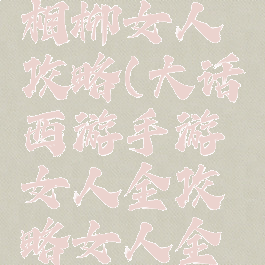 相柳女人
攻略(大话
西游手游
女人全攻
略女人全